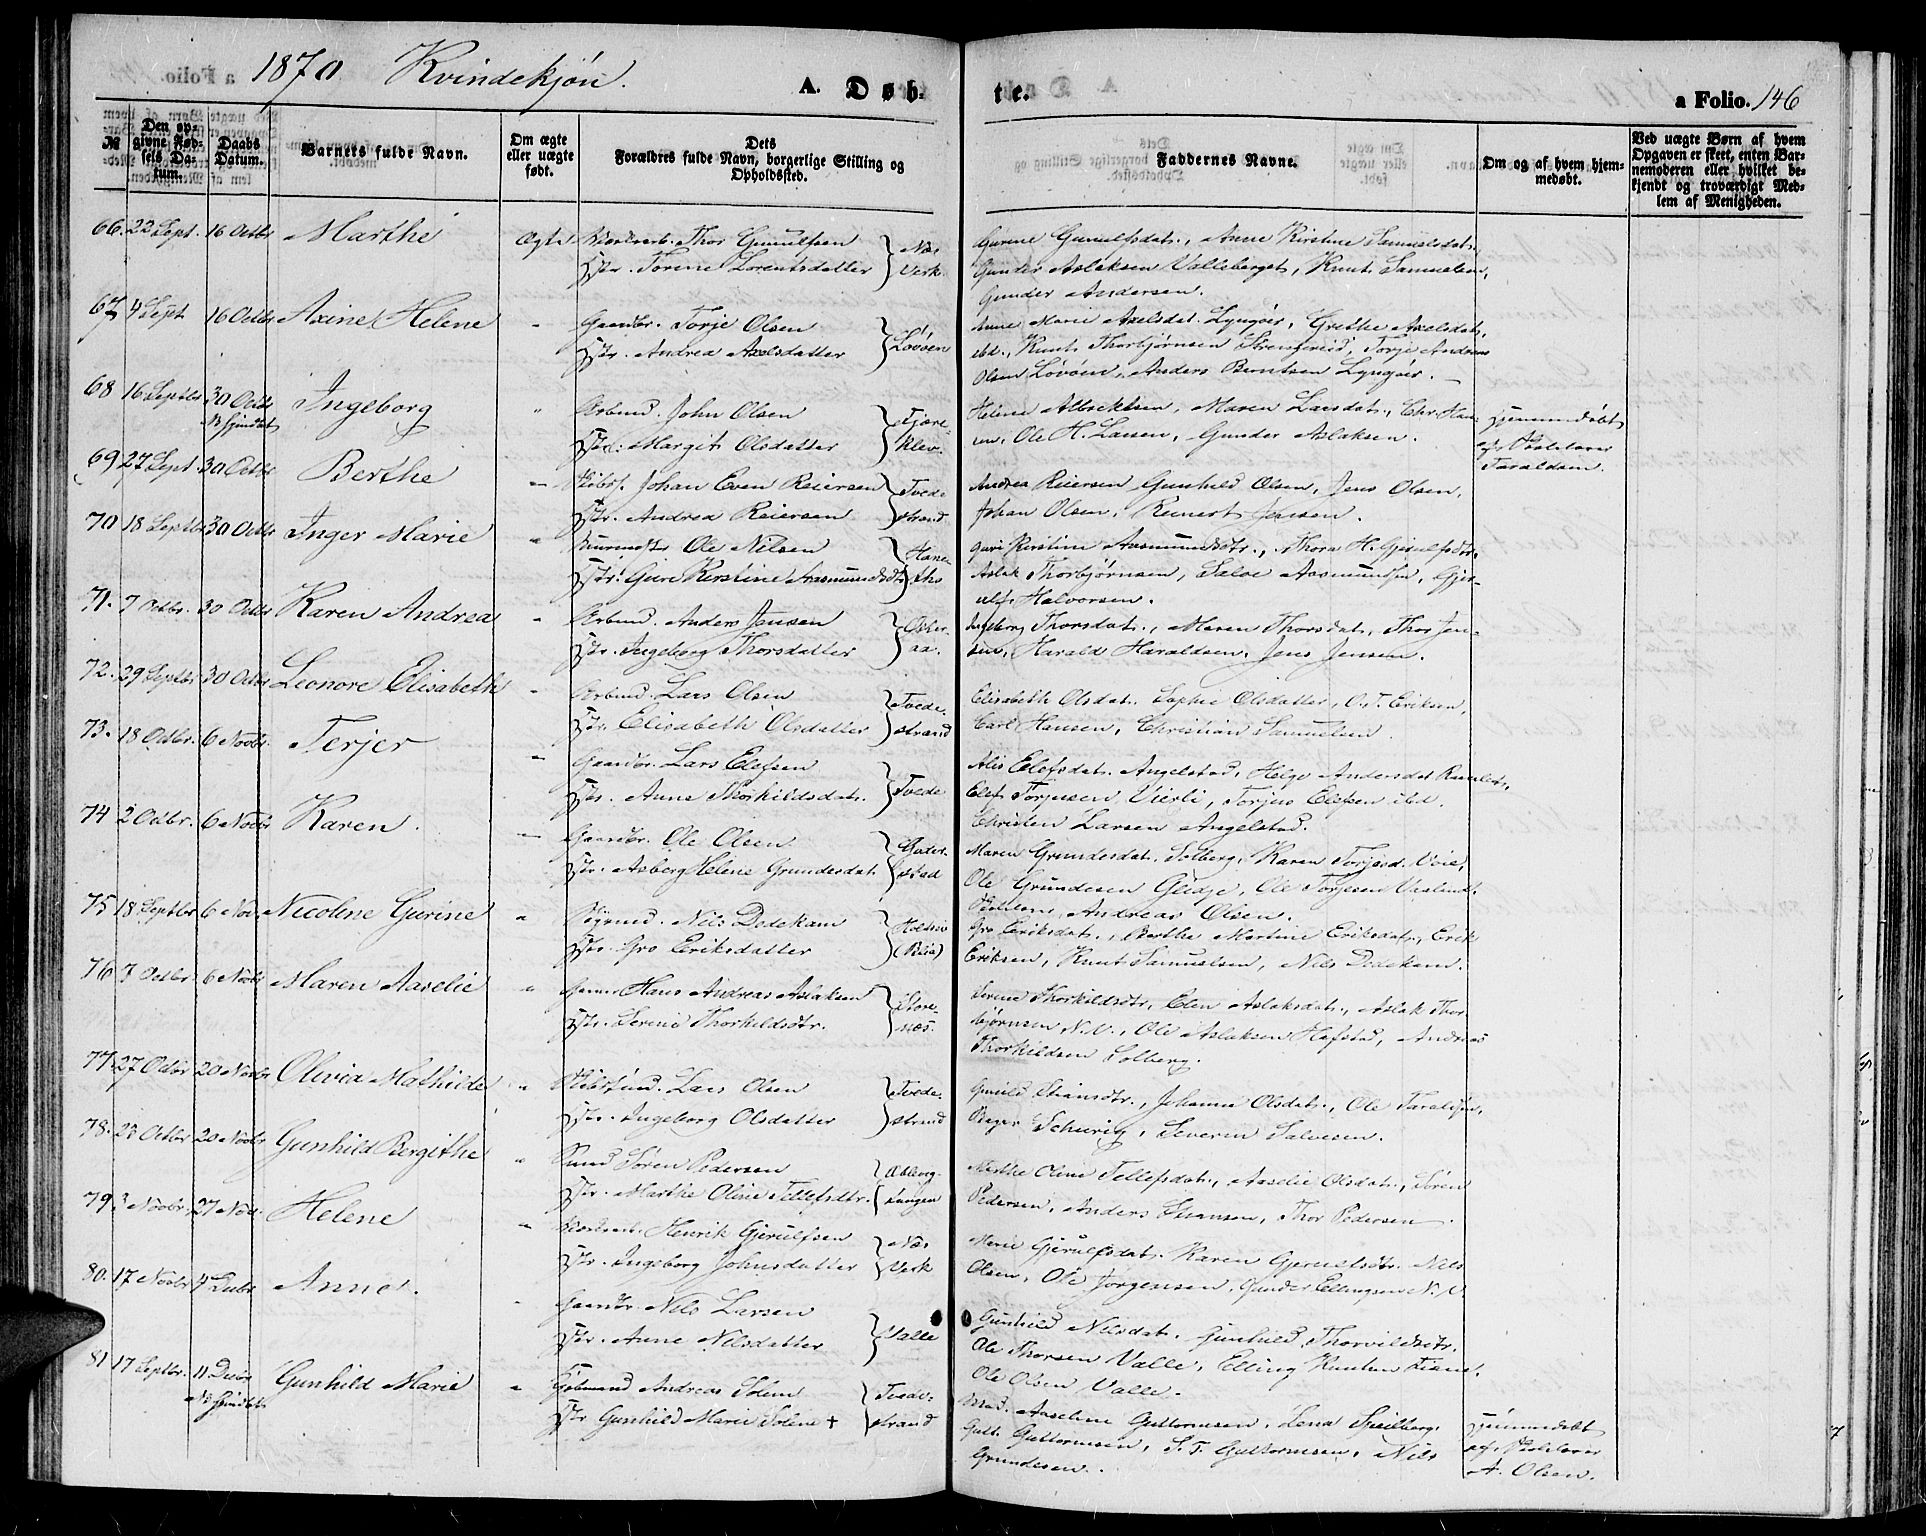 1870. Kvindekjön.
A. Døb-
te.
a Folio. 146
№
Den op-
givne Fød-
sels Da-
tum.
Daabs
Datum.
Barnets fulde Navn.
Om ægte
eller uægte
født.
Dets
Forældres fulde Navn, borgerlige Stilling og
Opholdssted.
Faddernes Navne.
Om og af hvem hjem-
medøbt.
Ved uægte Børn af hvem
Opgaven er skeet, enten Bar-
nemoderen eller hvilket be-
kjendt og troværdigt Med-
lem af Menigheden.
66. 22 Sept. 16 Octbr Marthe Ægte Værksarb. Thor Gunulfsen Næs
Hstr. Torine Lorentsdatter Verk.
Gurine Gunulfsdat., Anne Kirstine Samuelsdat.
Gunder Aslaksen Valleberget, Knut Samuelsen,
Gunder Andersen.
67 4 Sept 16 Octbr Axine Helene " Gaardbr. Torje Olsen
Hstr. Andrea Axelsdatter Lovøen
Anne Marie Axelsdat. Lyngöer, Grethe Axelsdat.
ibd., Knut Thorbjørnsen Strengereid, Torje Andreas
Olsen Lovöen, Anders Berntsen Lyngöer.
68 16 Septbr 30 Octbr Ingeborg " Arbmd. John Olsen Tjære-
Hstr. Margit Olsdatter klev.
Helene Albrektsen, Maren Larsdat., Chr. Han-
sen, Ole H. Larsen, Gunder Aslaksen.
Hjemmedöbt
af Skolelærer
Taraldsen.
69 27 Sept. 30 Octbr Berthe " Johan Even Reiersen Tvede-
Hstr. Andrea Reiersen strand
Andrea Reiersen, Gunhild Olsen, Jens Olsen,
Johan Olsen, Reinert Jensen.
70 18 Septbr 30 Octbr Inger Marie " Ole Nilsen
Hstr. Gure Kirstine Aasmundsdtr
Guri Kirstine Aasmundsdtr., Thora H. Gjerulfsdtr,
Aslak Thorbjørnsen, Salve Aasmundsen, Gjer-
ulf Halvorsen.
71. 7 Octbr. 30 Octbr Karen Andrea " Arbmd. Anders Jensen Oster-
Hstr. Ingeborg Thorsdatter aa.
Ingeborg Thorsdat., Maren Thorsdat., Thor Jen-
sen, Harald Haraldsen, Jens Jensen.
72. 29 Septbr 30 Octbr Leonore Elisabeth " Arbmd. Lars Olsen Tvede-
Hstr. Elisabeth Olsdatter strand
Elisabeth Olsdat. Sophie Olsdatter, O. T. Eriksen,
Carl Hansen, Christian Samuelsen.
73. 18 Octbr. 6 Novbr. Terjer " Gaardbr. Lars Elefsen
Hstr. Anne Thorkildsdat. Tvede
Alis Elefsdat. Angelstad, Helge Andersdat
Elef Torjusen Vierli, Torjus Elefsen ibd.
Christen Larsen Angelstad.
74 2 Octbr. 6 Novbr Karen. " Gaardbr. Ole Olsen
Hstr. Asberg Helene Grundesdat.
Maren Grundesdat. Solberg, Karen Torjusd. Voie,
Ole Grundesen Gjedje, Ole Torjesen
Andreas Olsen.
75 18 Septbr 6 Nov. Nicoline Gurine " Nils Dedekam
Hstr. Gro Eriksdatter
Gro Eriksdat., Berthe Martine Eriksdat, Erik
Eriksen, Knut Samuelsen, Nils Dedekam.
76 7 Octbr 6 Novbr Maren Aaselie " Hans Andreas Aslaksen Store-
Hstr. Serine Thorkildsdtr. næs.
Serine Thorkildsdtr, Elen Aslaksdat., Aslak Thor-
bjørnsen N.V., Ole Aslaksen Hofstad, Andreas
Thorkildsen Solberg.
77. 27 Octbr 20 Novbr Olivia Mathilde " Lars Olsen Tvede-
Hstr. Ingeborg Olsdatter strand
Johanne Olsdat., Ole Taraldsen,
Schurig, Severin Salvesen.
78. 23 Octbr 20 Novbr Gunhild Bergithe " Sören Pedersen
Hstr. Marthe Oline Tellefsdtr.
Marthe Oline Tellefsdat., Aaselie Olsdat., Sören
Pedersen, Anders Hansen, Thor Pedersen.
79. 3 Novbr. 27 Nov. Helene " Værksarb. Henrik Gjerulfsen Næs
Hstr. Ingeborg Johnsdatter Verk
Marie Gjerulfsdat. Karen Gjerulfsdtr. Nils
Olsen, Ole Jörgensen, Gunder Ellingsen N.V.
80. 17 Novbr 4 Decbr Anne. " Gaardbr. Nils Larsen
Hstr. Anne Nilsdatter Valle
Gunhild Nilsdat. Gunhild Thorvildsdtr.
Ole Thorsen Valle, Elling Knutsen Liane.
Ole Olsen Valle.
81 17 Septbr. 11 Decbr Gunhild Marie " Andreas Solem Tvede-
Hstr Gunhild Marie Solem + strand
Mad. Aaseline Guttormsen, Lena Speilberg,
Gutt. Guttormsen, S. T. Guttormsen, Nils
Grundesen.
Hjemmedöbt
af Skolelærer
A. Olsen.